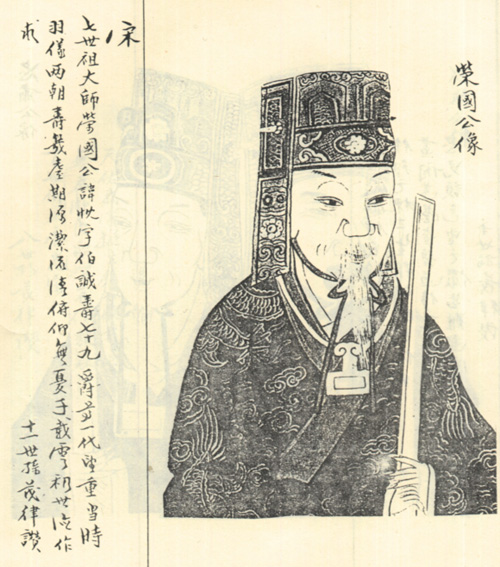 榮國公像
宋
七世祖大師榮國公諱忱字伯誠壽七十九爵一代望重當時
羽儀两朝壽幾耋期源潔流清俯仰無憂千載雲礽世德作
求
十一世孫茂律讚